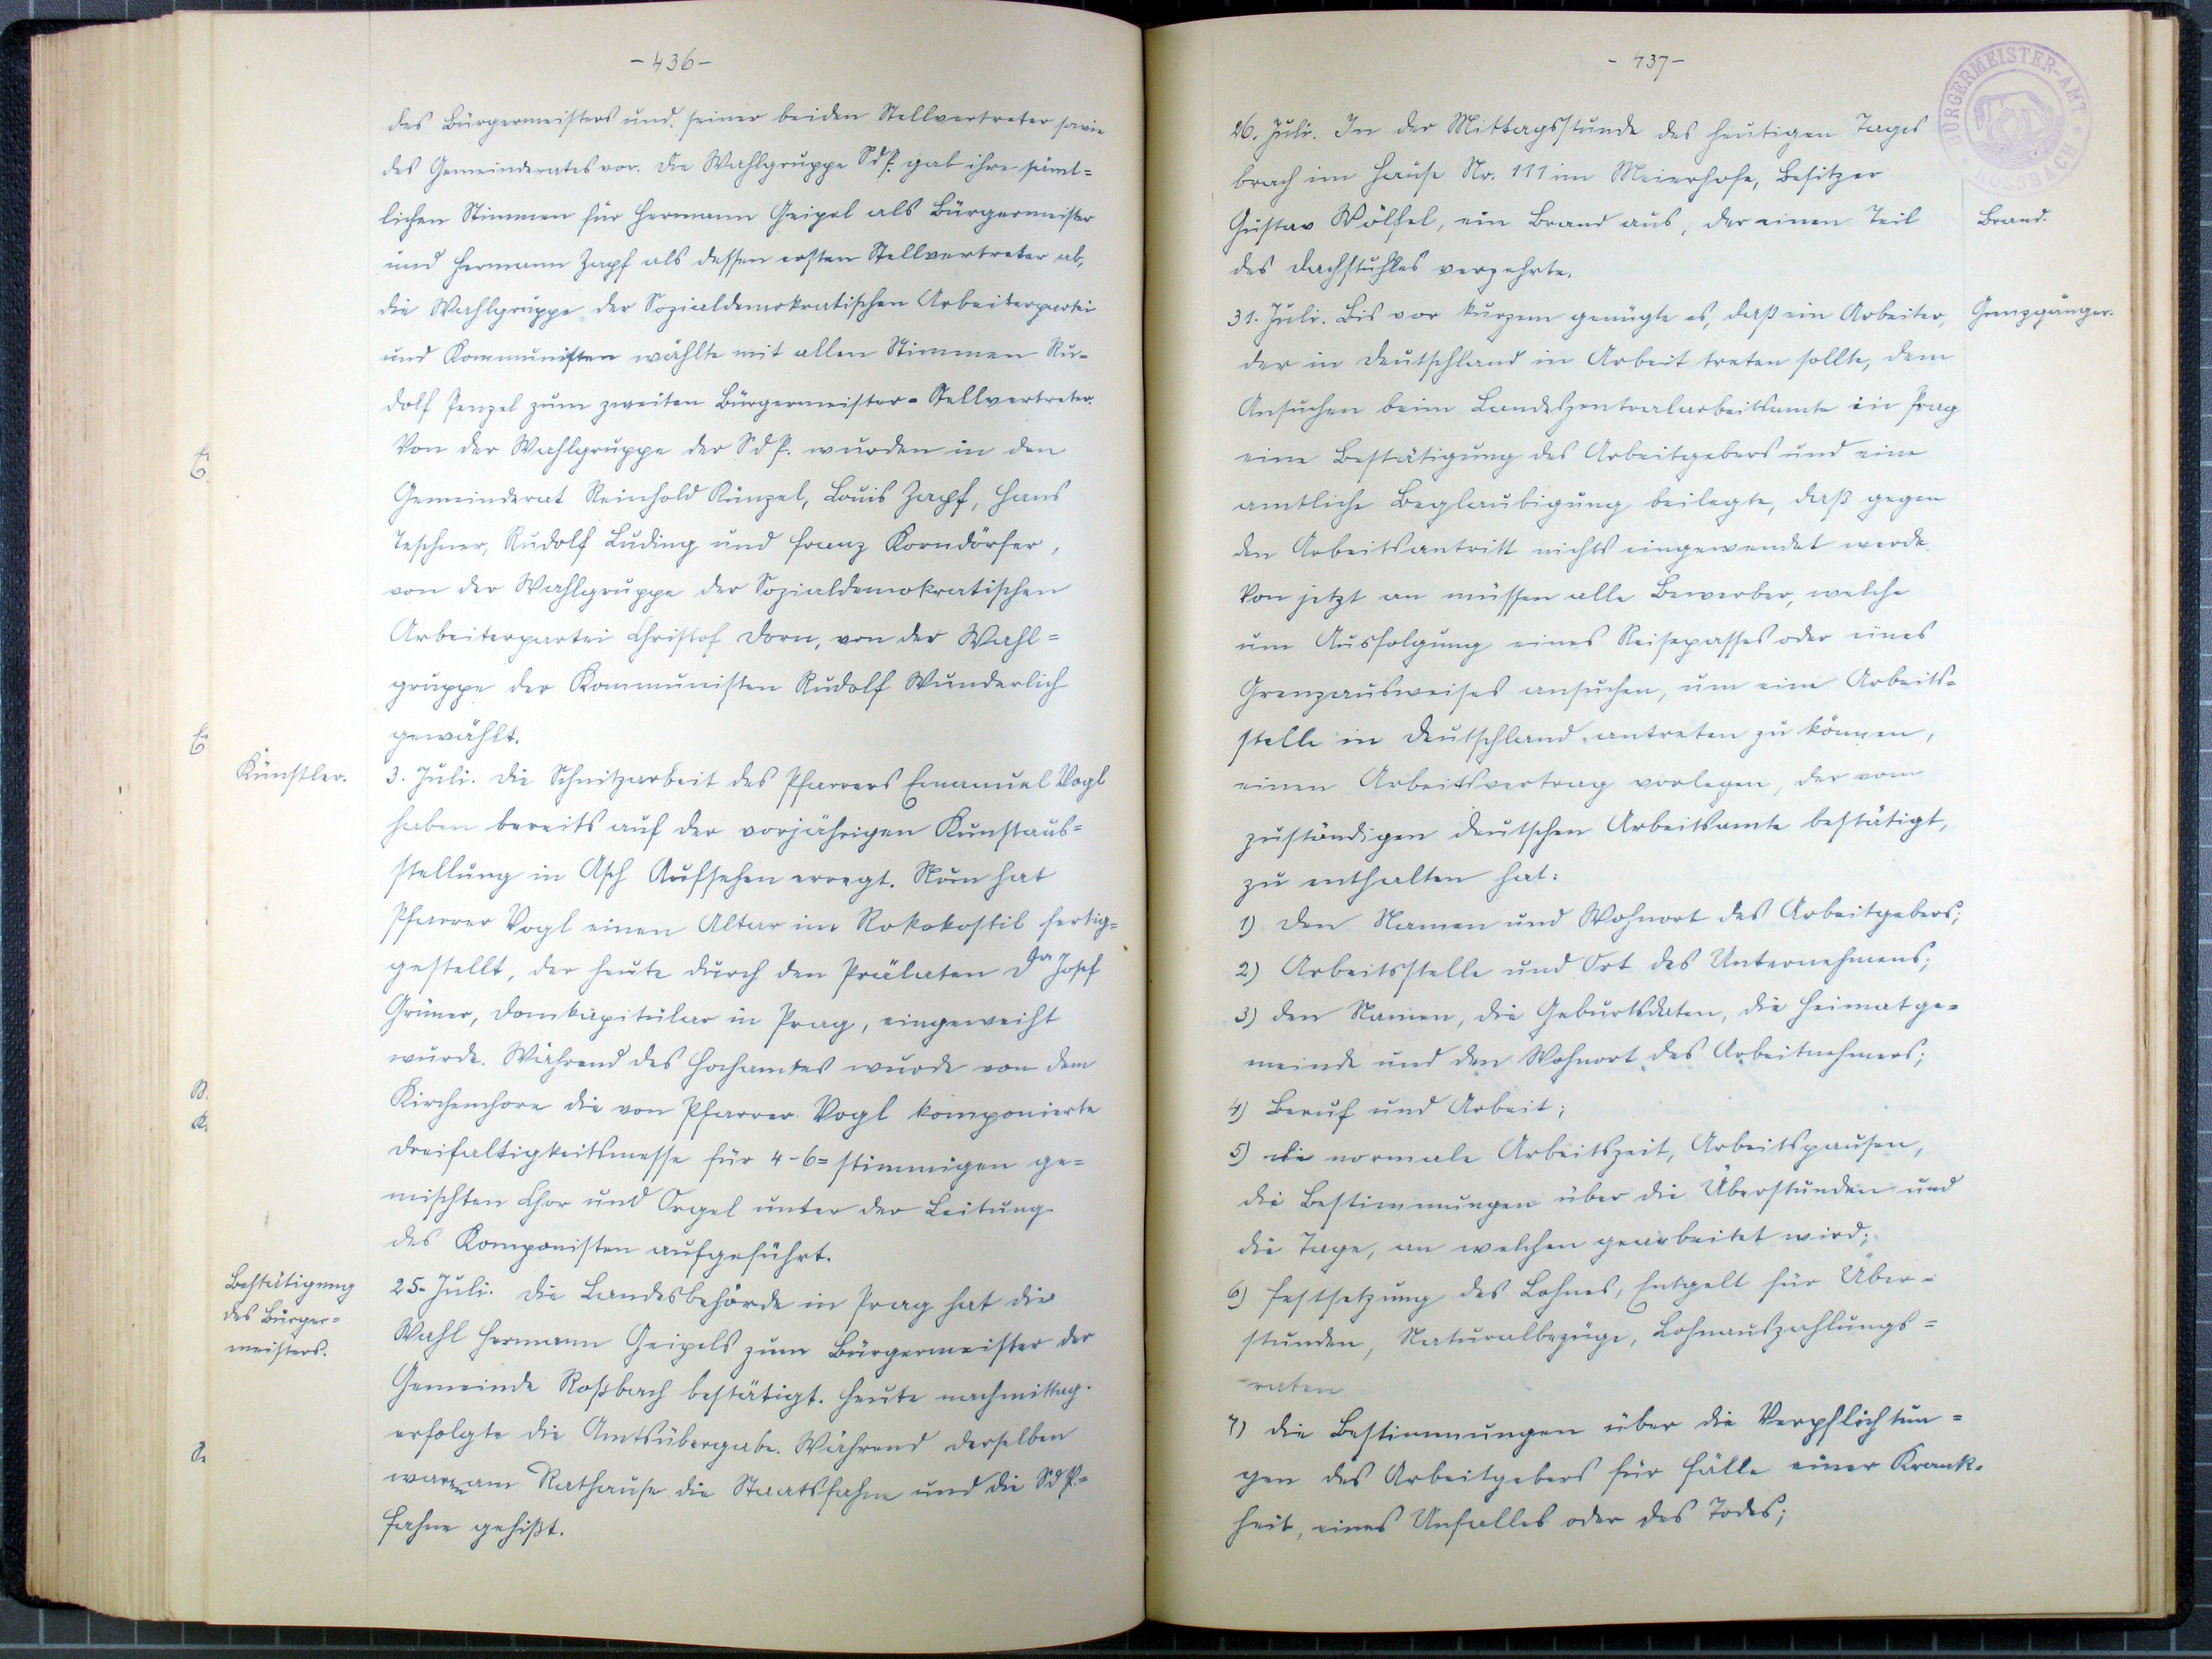 -436-
des Bürgermeisters und seiner beiden Stellvertreter sowie
des Gemeinderates vor. Die Wahlgruppe SdP. gab ihre sämt=
lichen Stimmen für Hermann Geipel als Bürgermeister
und Hermann Zapf als dessen ersten Stellvertreter ab,
die Wahlgruppe der Sozialdemokratischen Arbeiterpartei
und Kommunisten wählte mit allen Stimmen Ru=
dolf Penzel zum zweiten Bürgermeister=Stellvertreter.
Von der Wahlgruppe der SdP. wurden in den
Gemeinderat Reinhold Künzel, Louis Zapf, Hans
Teschner, Rudolf Luding und Franz Korndörfer,
von der Wahlgruppe der Sozialdemokratischen
Arbeiterpartei Christof Dorn, von der Wahl=
gruppe der Kommunisten Rudolf Wunderlich
gewählt.
Künstler.
3. Juli. Die Schnitzarbeit des Pfarrers Emanuel Vogl
haben bereits auf der vorjährigen Kunstaus=
stellung in Asch Aufsehen erregt. Nun hat
Pfarrer Vogl einen Altar im Rokokostil fertig=
gestellt, der heute durch den Prälaten Dr Josef
Grüner, Domkapitular in Prag, eingeweiht
wurde. Während des Hochamtes wurde von dem
Kirchenchore die von Pfarrer Vogl komponierte
Dreifaltigkeitsmesse für 4-6=stimmigen ge=
mischten Chor und Orgel unter der Leitung
des Komponisten aufgeführt.
Bestätigung
des Bürger=
meisters.
25. Juli. Die Landesbehörde in Prag hat die
Wahl Hermann Geipels zum Bürgermeister der
Gemeinde Roßbach bestätigt. Heute nachmittag
erfolgte die Amtsübergabe. Während derselben
waren am Rathause die Staatsfahne und die SdP=
Fahne gehißt.
-437-
BÜRGERMEISTER-AMT
ROSSBACH
26. Juli. In der Mittagsstunde des heutigen Tages
brach im Hause Nr. 111 im Meierhofe, Besitzer
Gustav Wölfel, ein Brand aus, der einen Teil
des Dachstuhles verzehrte.
Brand.
31. Juli. Bis vor kurzem genügte es, daß ein Arbeiter,
Grenzgänger.
der in Deutschland in Arbeit treten sollte, dem
Ansuchen beim Landeszentralarbeitsamte in Prag
eine Bestätigung des Arbeitgebers und eine
amtliche Beglaubigung beilegte, daß gegen
den Arbeitsantritt nichts eingewendet werde.
Von jetzt an müssen alle Bewerber, welche
um Ausfolgung eines Reisepasses oder eines
Grenzausweises ansuchen, um eine Arbeits=
stelle in Deutschland antreten zu können,
einen Arbeitsvertrag vorlegen, der vom
zuständigen deutschen Arbeitsamte bestätigt,
zu enthalten hat:
1) Den Namen und Wohnort des Arbeitgebers;
2) Arbeitsstelle und Ort des Unternehmens;
3) den Namen, die Geburtsdaten, die Heimatge=
meinde und den Wohnort des Arbeitnehmers;
4) Beruf und Arbeit;
5) die normale Arbeitszeit, Arbeitspausen,
die Bestimmungen über die Überstunden und
die Tage, an welchen gearbeitet wird;
6) Festsetzung des Lohnes, Entgelt für Über=
stunden, Naturalbezüge, Lohnauszahlungs=
raten
7) die Bestimmungen über die Verpflichtun=
gen des Arbeitgebers für Fälle einer Krank=
heit, eines Unfalles oder des Todes;